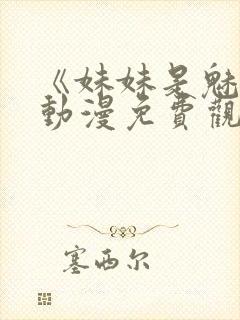 《妹妹是魅
動漫免費觀
塞西尔